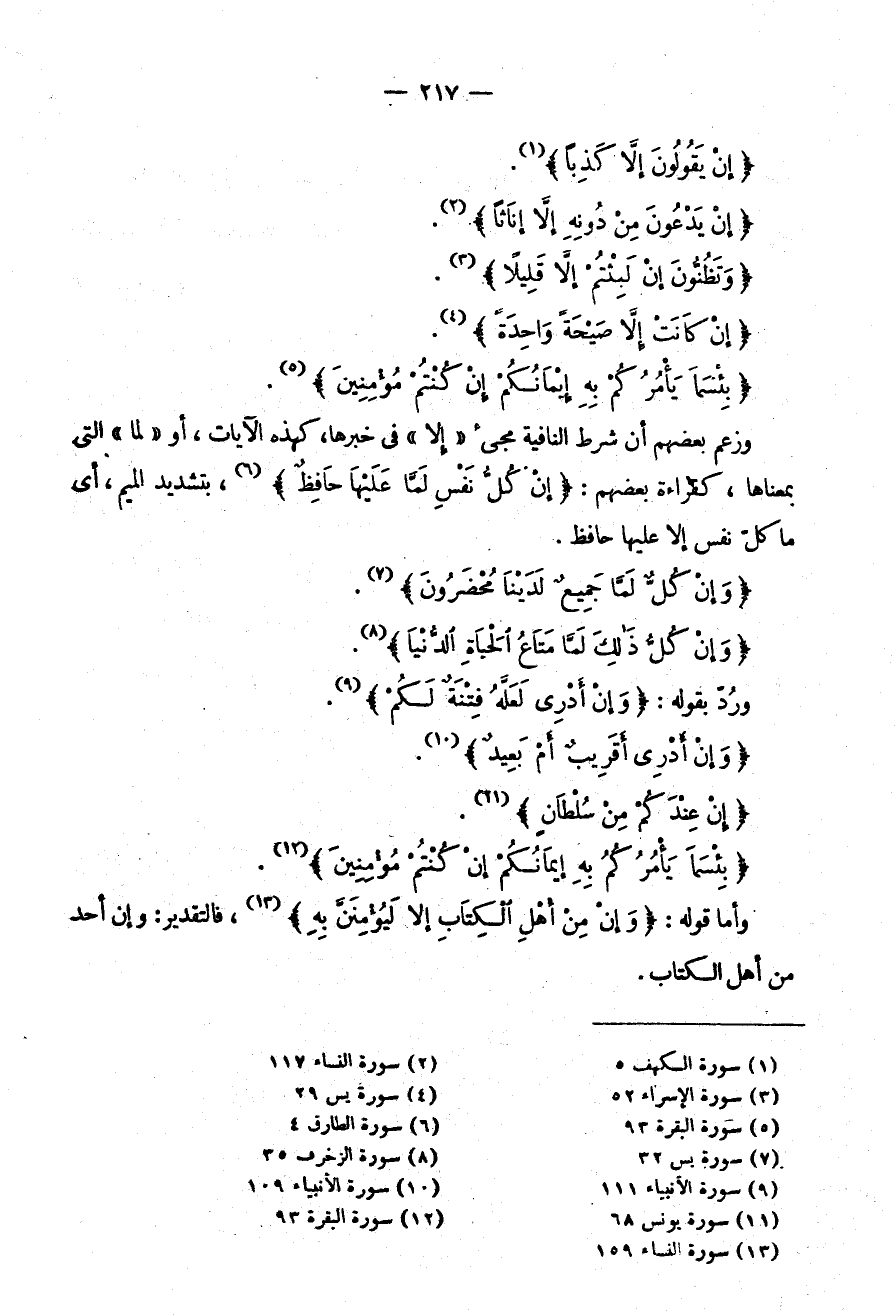 — ٢١٧ —
﴿ إِنْ يَقُولُونَ إِلَّا كَذِباً ﴾(١).
﴿ إِنْ يَدْعُونَ مِنْ دُونِهِ إِلَّا إِنَاثاً ﴾(٢).
﴿ وَتَظُنُّونَ إِنْ لَبِثْتُمْ إِلَّا قَلِيلًا ﴾(٣).
﴿ إِنْ كَانَتْ إِلَّا صَيْحَةً وَاحِدَةً ﴾(٤).
﴿ بِئْسَمَا يَأْمُرُكُمْ بِهِ إِيْمَانُكُمْ إِنْ كُنْتُمْ مُؤْمِنِينَ ﴾(٥).
وزعم بعضهم أن شرط النافية مجىء « إلا » فى خبرها، كهذه الآيات ، أو « لما » التى
بمعناها ، كقراءة بعضهم : ﴿ إِنْ كُلُّ نَفْسٍ لَمَّا عَلَيْهَا حَافِظٌ ﴾(٦) ، بتشديد الميم ، أى
ما كلّ نفس إلا عليها حافظ .
﴿ وَإِنْ كُلٌّ لَمَّا جَمِيعٌ لَدَيْنَا مُحْضَرُونَ ﴾(٧).
﴿ وَإِنْ كُلُّ ذَٰلِكَ لَمَّا مَتَاعُ ٱلْحَيَاةِ ٱلدُّنْيَا ﴾(٨).
ورُدّ بقوله : ﴿ وَإِنْ أَدْرِى لَعَلَّهُ فِتْنَةٌ لَكُمْ ﴾(٩).
﴿ وَإِنْ أَدْرِى أَقَرِيبٌ أَمْ بَعِيدٌ ﴾(١٠).
﴿ إِنْ عِنْدَكُمْ مِنْ سُلْطَانٍ ﴾(٢١).
﴿ بِئْسَمَا يَأْمُرُكُمُ بِهِ إِيمَانُكُمْ إِنْ كُنْتُمْ مُؤْمِنِينَ ﴾(١٢).
وأما قوله : ﴿ وَإِنْ مِنْ أَهْلِ ٱلْكِتَابِ إلا لَيُؤْمِنَنَّ بِهِ ﴾(١٣) ، فالتقدير: وإن أحد
من أهل الكتاب .
(١) سورة الكهف ٥ (٢) سورة النساء ١١٧
(٣) سورة الإسراء ٥٢ (٤) سورة يس ٢٩
(٥) سورة البقرة ٩٣ (٦) سورة الطارق ٤
(٧) سورة يس ٣٢ (٨) سورة الزخرف ٣٥
(٩) سورة الأنبياء ١١١ (١٠) سورة الأنبياء ١٠٩
(١١) سورة يونس ٦٨ (١٢) سورة البقرة ٩٣
(١٣) سورة النساء ١٥٩